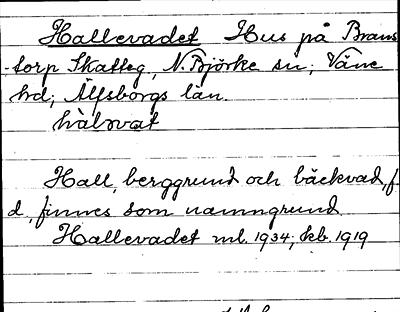 Hallevadet Hus på Brans
-torp Skatteg, N. Björke sn; Väne
hd; Älfsborgs län.
hàlavat
Hall, berggrund och bäckvad, f.
d, finnes som namngrund.
Hallevadet ml. 1934; kb. 1919